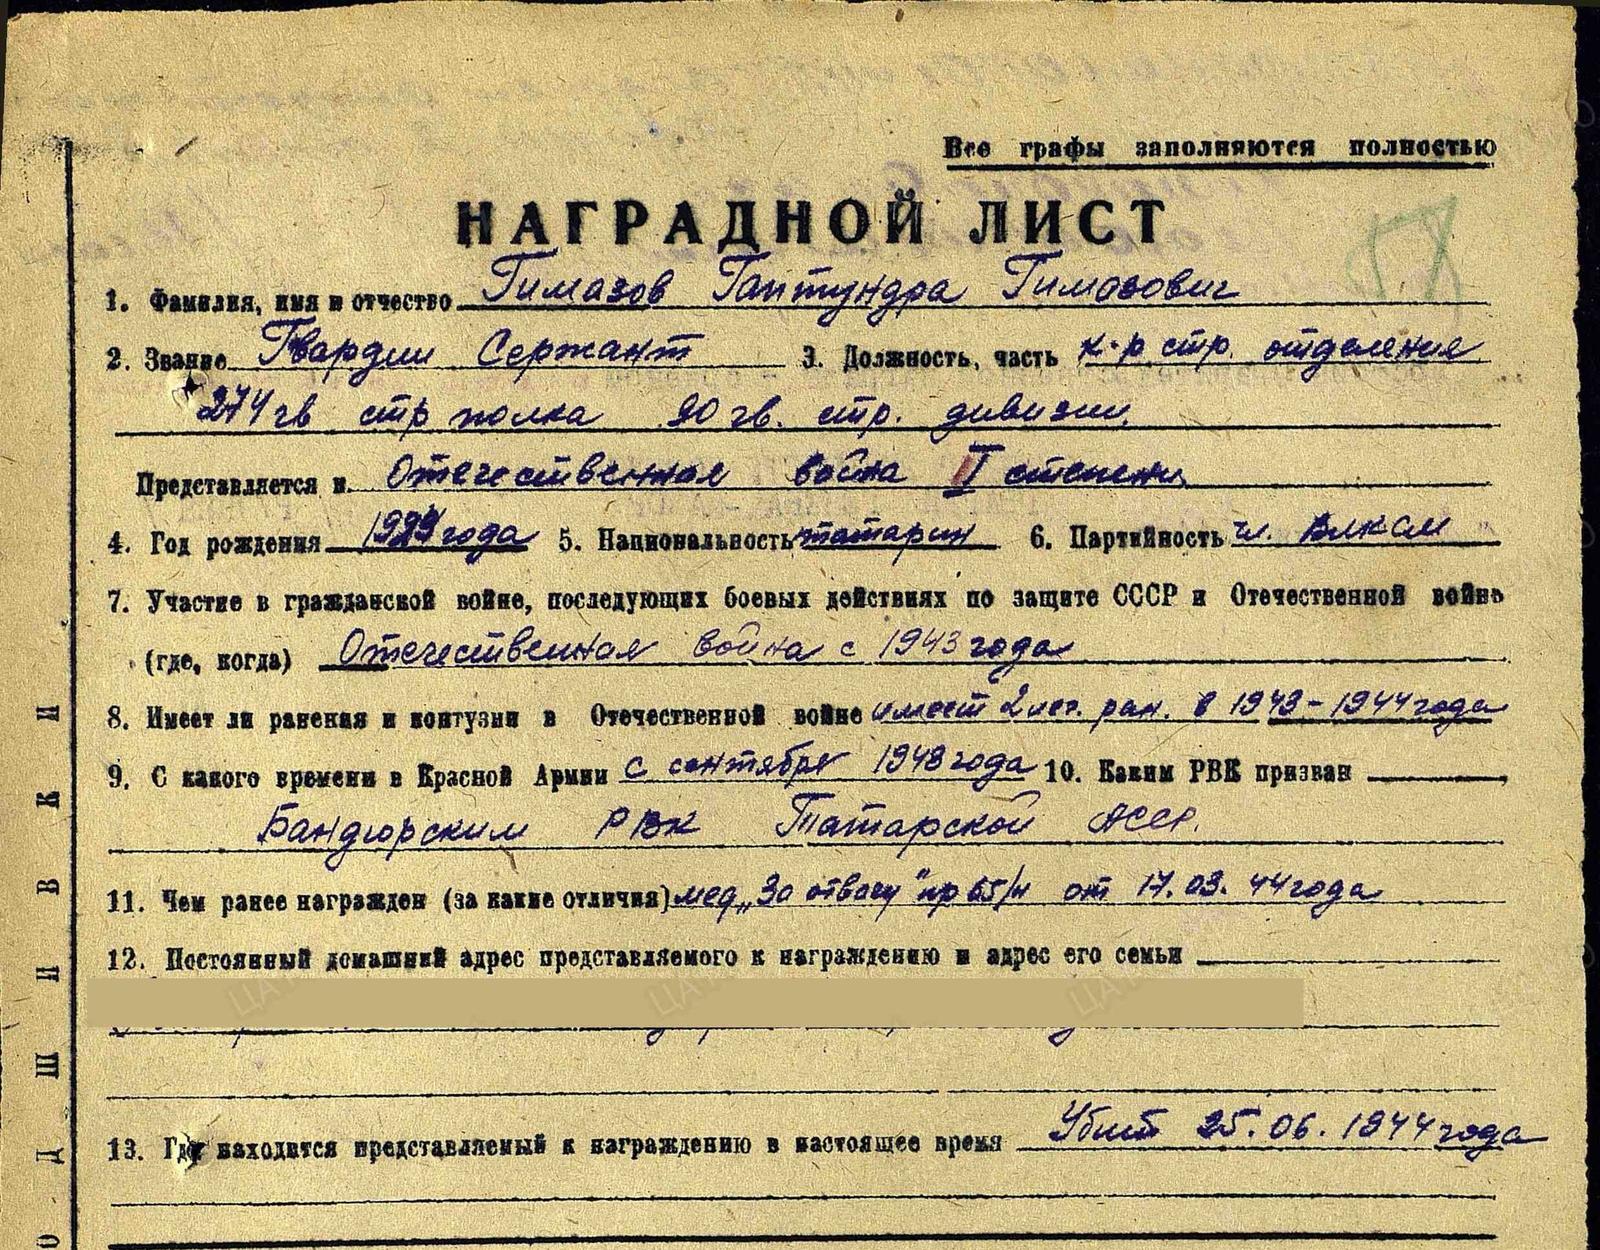 Все графы заполняются полностью
НАГРАДНОЙ ЛИСТ
1. Фамилия, имя и отчество Гимазов Гаптундра Гимазович
2. Звание Гвардии Сержант 3. Должность, часть к-р стр. отделения
274 гв стр полка 90 гв. стр. дивизии.
Представляется к Отечественная война II степени
4. Год рождения года 5. Национальность татарин 6. Партийность чл. ВЛКСМ
7. Участие в гражданской войне, последующих боевых действиях по защите СССР и Отечественной войне
(где, когда) Отечественная война с 1943 года
8. Имеет ли ранения и контузии в Отечественной войне имеет 2 лег. ран. в 1943-1944 года
9. С какого времени в Красной Армии с сентября 1943 года 10. Каким РВК призван
Бандюрским РВК Татарской АССР.
11. Чем ранее награжден (за какие отличия) мед „За отвагу" пр 65/н от 17.03.44 года
12. Постоянный домашний адрес представляемого к награждению и адрес его семьи
13. Где находится представляемый к награждению в настоящее время Убит 25.06.1944 года